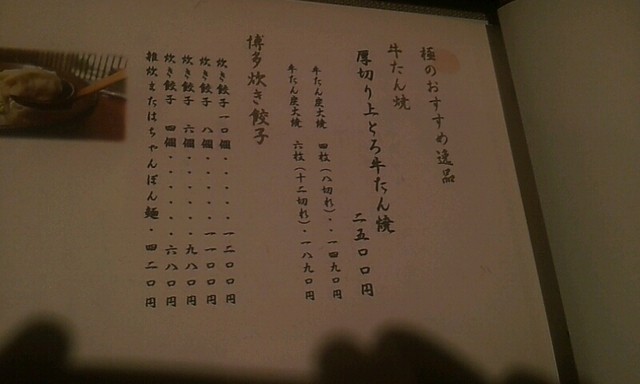 極のおすすめ逸品
牛たん焼
厚切り上とろ牛たん焼 二五〇〇円
牛たん炭火焼 四枚(八切れ)・・一四九〇円
牛たん炭火焼 六枚(十二切れ)・一八九〇円
博多炊き餃子
炊き餃子 一〇個・・・・・一二〇〇円
炊き餃子 八個・・・・・・一一〇〇円
炊き餃子 六個・・・・・・九八〇円
炊き餃子 四個・・・・・・六八〇円
雑炊またはちゃんぽん麺・四二〇円